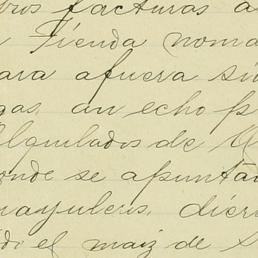 facturas a
Tienda noma
ara afuera si
gas, an echo p
lquilados de
onde se apunta
mayuleris, dier
el maiz de S